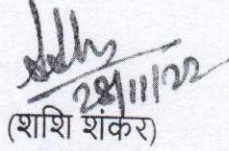 28/11/22
(शशि शंकर)